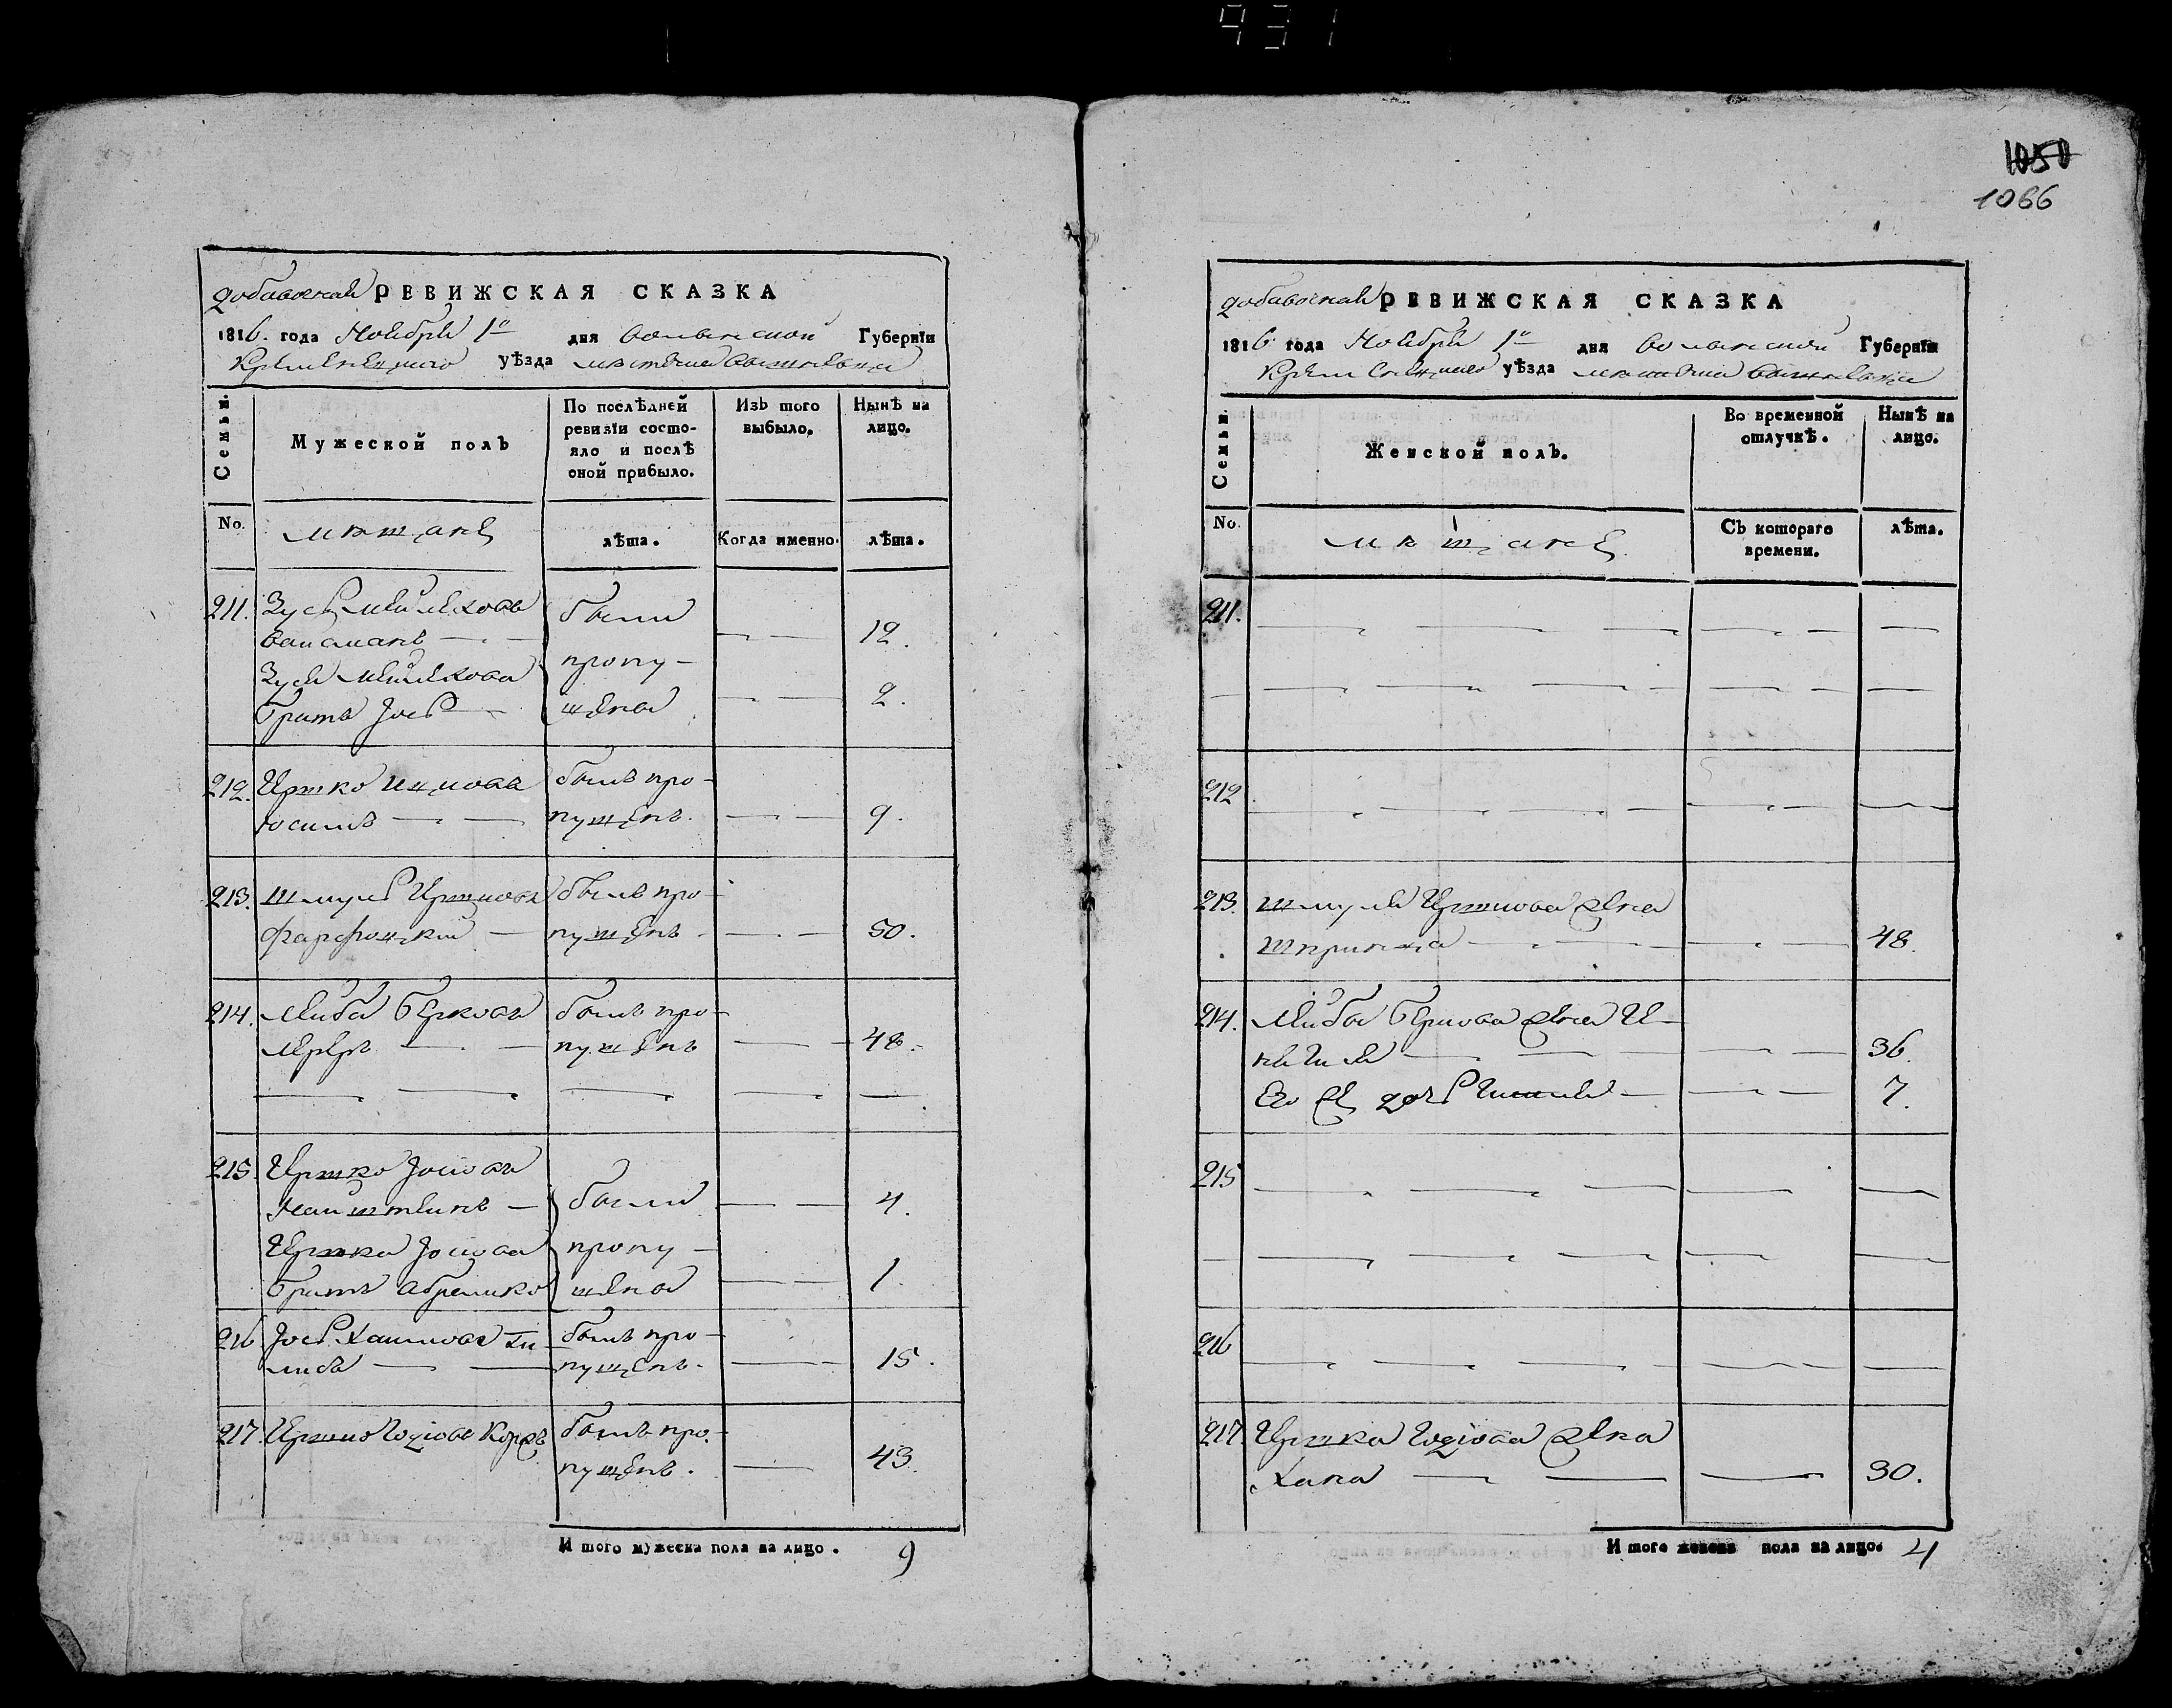 931
1050
1066
добавочная РЕВИЖСКАЯ СКАЗКА
1816. года Ноября 1го дня волынской Губернїи
Кременецкаго уѣзда местечка Вышневца
Семьи.
Мужеской полъ
По послѣдней
ревизїи состо-
яло и послѣ
оной прибыло.
Изъ того
выбыло.
Нынѣ на
лицо.
No.
мѣщане
лѣта.
Когда именно.
лѣта.
211. Зусь Мейлехова
вайсманъ
были
12.
Зуся Мейлехова
братъ Іось
пропу-
щены
2.
212. Гершко Ицкова
былъ про-
пущенъ.
9.
213. Шмуль Гершкова
былъ про-
пущенъ
50.
214. Лейба Беркова
былъ про-
пущенъ
48.
215. Гершко Іосіова
были
4.
Гершка Іосіова
братъ Абрамко
пропу-
щены
1.
216 Іось Хаимова
былъ про-
пущенъ.
15.
217. Гершко
былъ про-
пущенъ.
43.
Итого мужеска пола на лицо. 9
добавочная РЕВИЖСКАЯ СКАЗКА
1816 года Ноября 1го дня волынской Губернїи
Кременецкаго уѣзда местечка Вышневца
Семьи.
Женской полъ.
Во временной
отлучкѣ.
Нынѣ на
лицо.
No.
мѣщане
Съ котораго
времени.
лѣта.
211.
212
213. Шмуля Гершкова жена
Шпринца
48
214. Лейбы Беркова жена
36.
Его же дочь
7.
215
216
217. Гершка жена
Хана
30.
Итого женска пола на лицо. 4